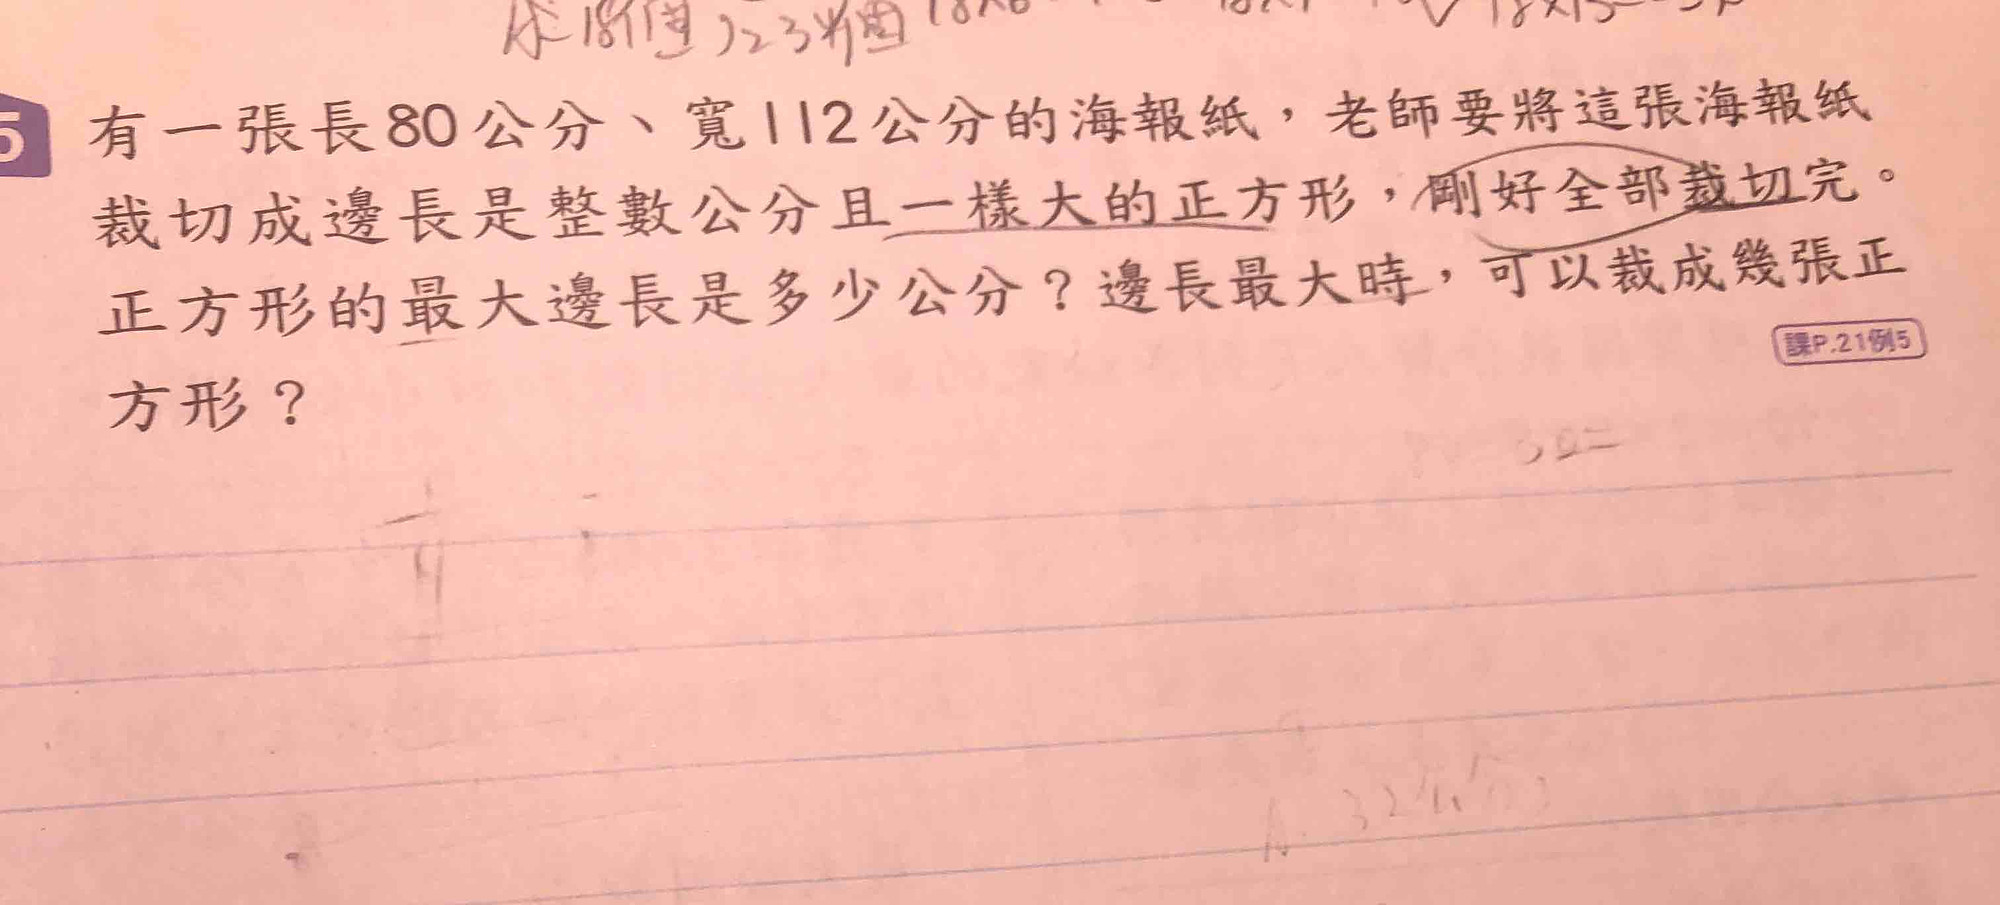 求18個
5
有一張長80公分、寬112公分的海報紙，老師要將這張海報紙
裁切成邊長是整數公分且一樣大的正方形，剛好全部裁切完。
正方形的最大邊長是多少公分？邊長最大時，可以裁成幾張正
課P.21例5
方形？
A. 32公分